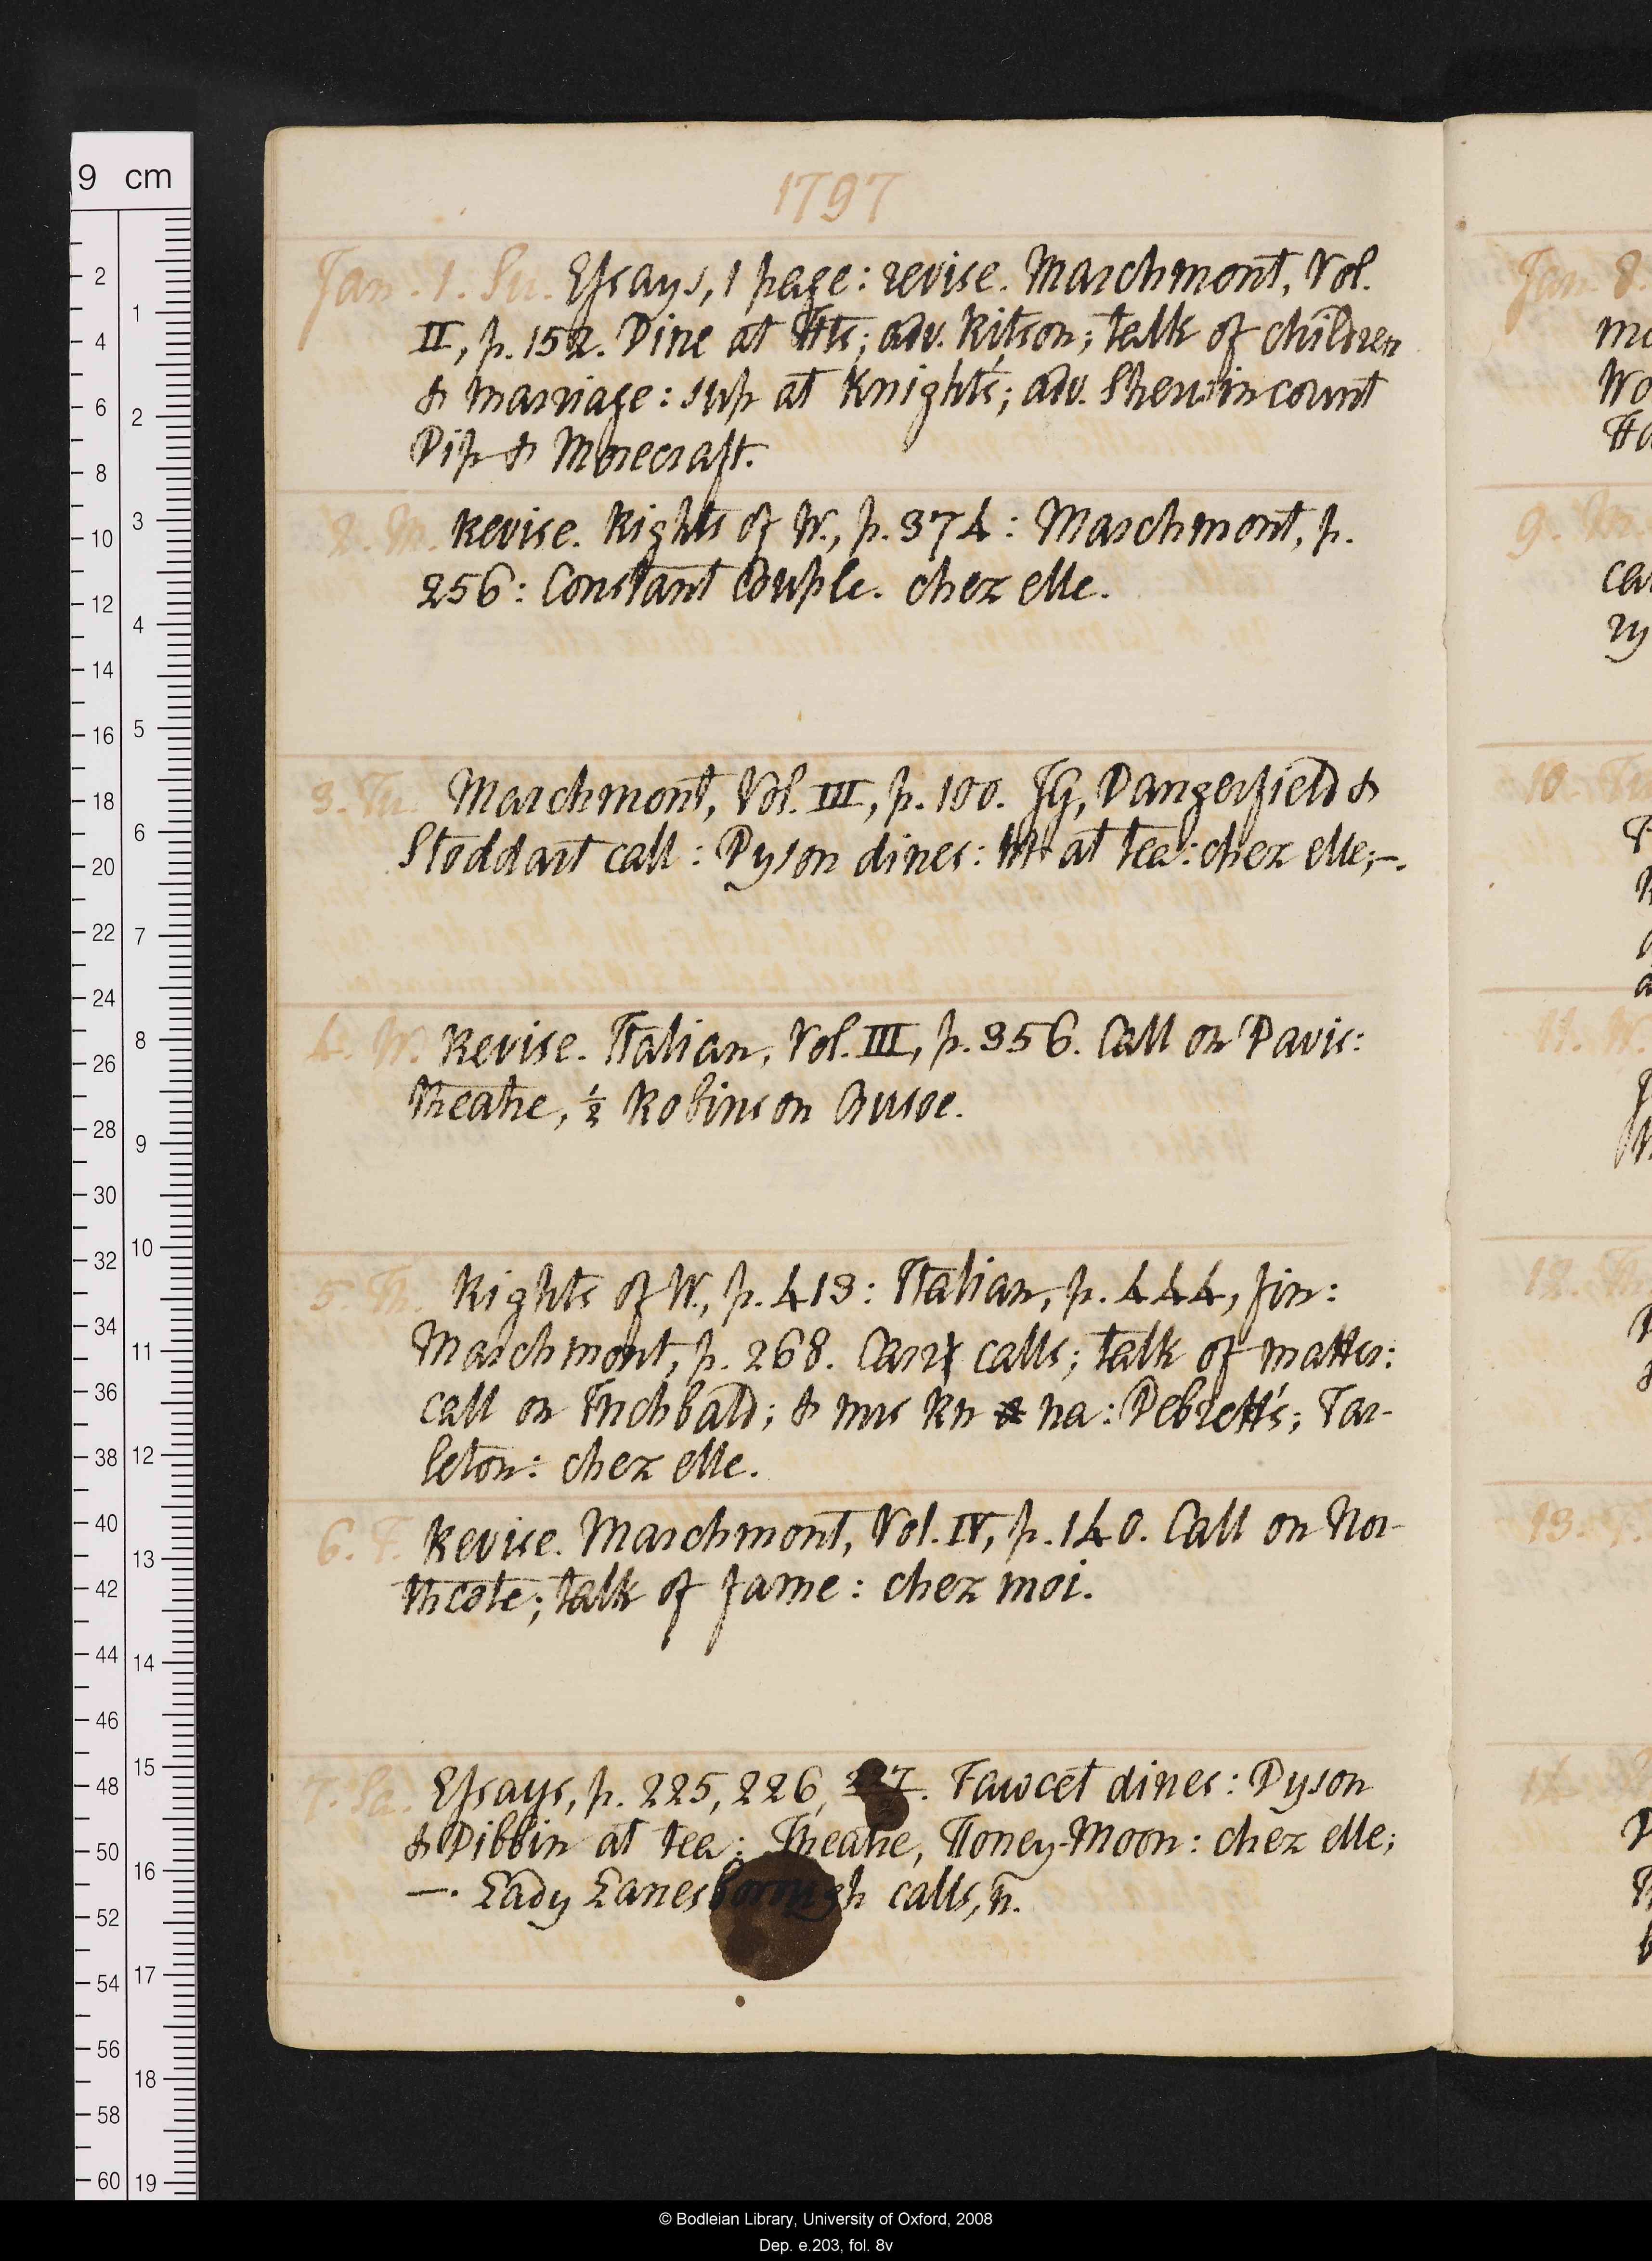 9 cm
1797
Jan. 1. Su. Essays, 1 page: revise. Marchmont, Vol.
II, p. 152. Dine at Hts; adv. Ritson; talk of children
& marriage: sup at Knight's; adv. Sherwin count
Dip & Morecraft.
2. M. Revise. Rights of W., p. 374: Marchmont, p.
256: Constant Couple. chez elle.
3. Tu. Marchmont, Vol. III, p. 100. JG, Dangerfield &
Stoddart call: Dyson dines: Ht at tea: chez elle;—.
4. W. Revise. Italian, Vol. III, p. 356. Call on Davis:
Theatre, ½ Robinson Crusoe.
5. Th. Rights of W., p. 413: Italian, p. 444, fin:
Marchmont, p. 268. Carr calls; talk of matter:
call on Inchbald; & mrs Rn na: Debrett's; Tar-
leton: chez elle.
6. F. Revise. Marchmont, Vol. IV, p. 140. Call on Nor-
thcote; talk of fame: chez moi.
7. Sa. Essays, p. 225, 226, 227. Fawcet dines: Dyson
& Dibbin at tea: Theatre, Honey-Moon: chez elle;
—. Lady Lanesborough calls, n.
Jan. 8.
9. M.
10. Tu
11. W.
12.
13.
14.
© Bodleian Library, University of Oxford, 2008
Dep. e.203, fol. 8v